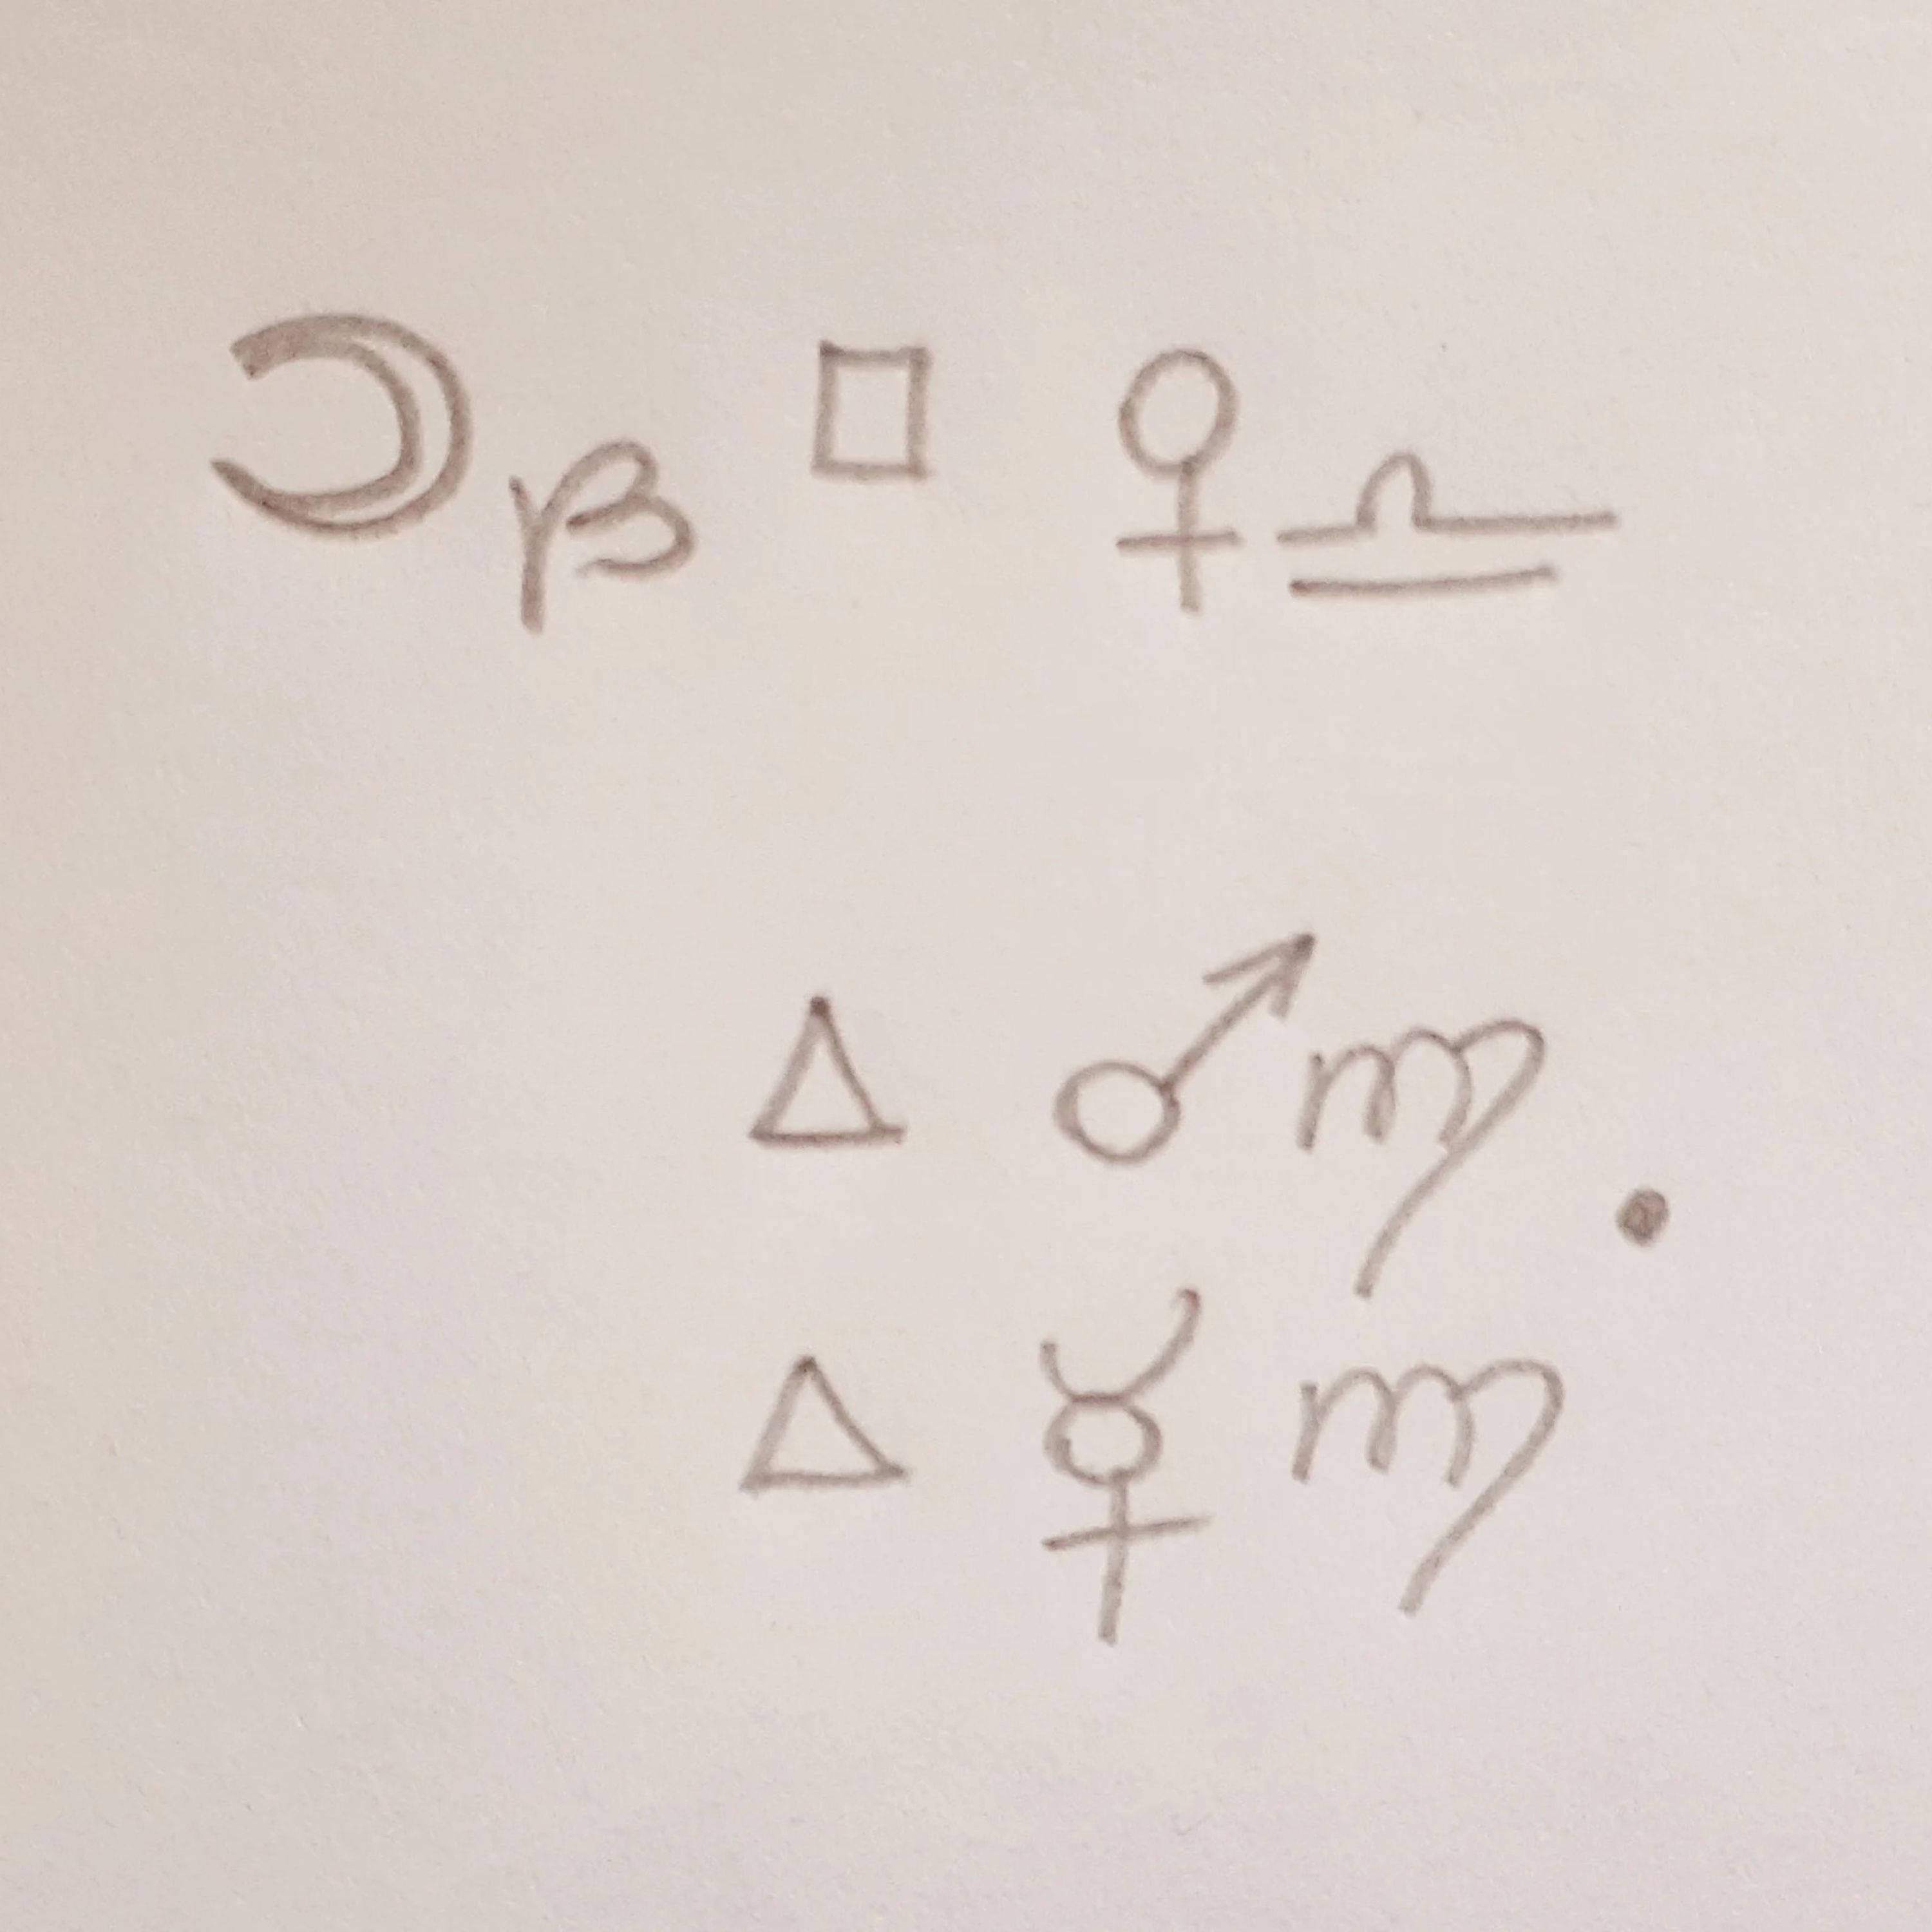 ☽♑ □ ♀♎
△ ♂♍.
△ ☿♍